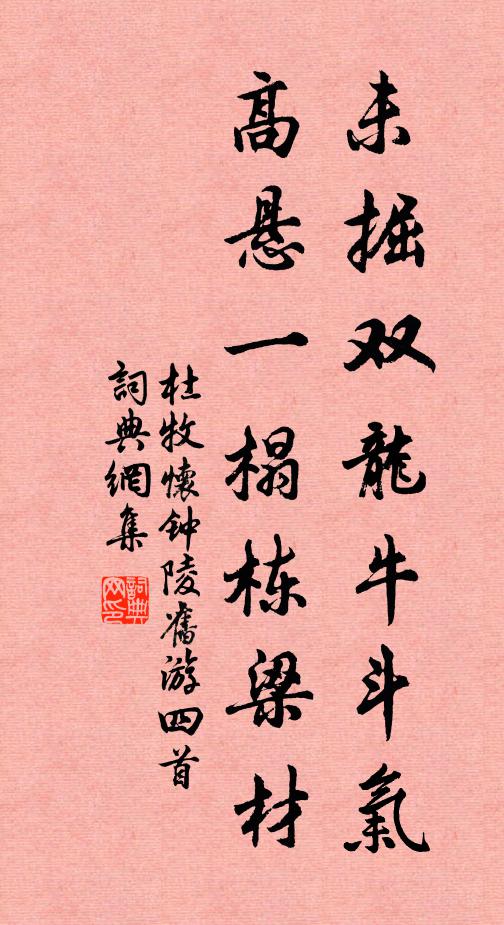 未掘双龍牛斗氣
高悬一榻栋梁材
杜牧懷钟陵舊游四首
詞典網集
詞典网印